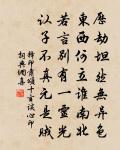 歷劫坦然無異色
東西何立誰南北
若言別有一靈光
認子不真元是賊
釋印肅頌十玄談心印
詞典網